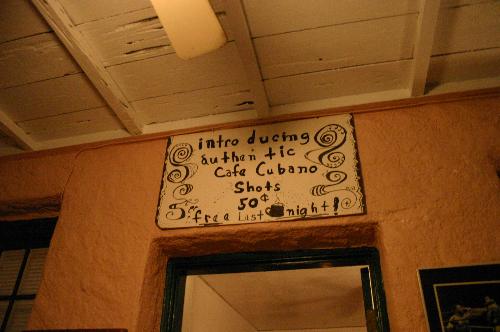 intro ducing
authen tic
Cafe Cubano
Shots
50¢
free Last night!